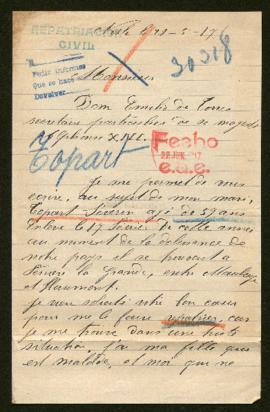 REPATRIACION
CIVIL
le 28-5-17
30318
Pedir informes
Que se hace
Devolver
Monsieur
Dom Emilio de Torres
secretaire particulier de sa majesté
Alphonse XIII.
Topart
Fecho
22 JUN. 17
e.a.e.
Je me permet de vous
ecrire, au sujet de mon mari,
Topart Séverin agé de 59 ans
le 17 de cette année
au moment de la délivrance de
notre pays et se trouvant a
la Grande, entre Maubeuge
et Haumont.
Je vien solicité votre bon cœur
pour me le faire rapatrier, car
je me trouve dans une triste
situation j'ai ma fille qui
est malade, et moi qui ne